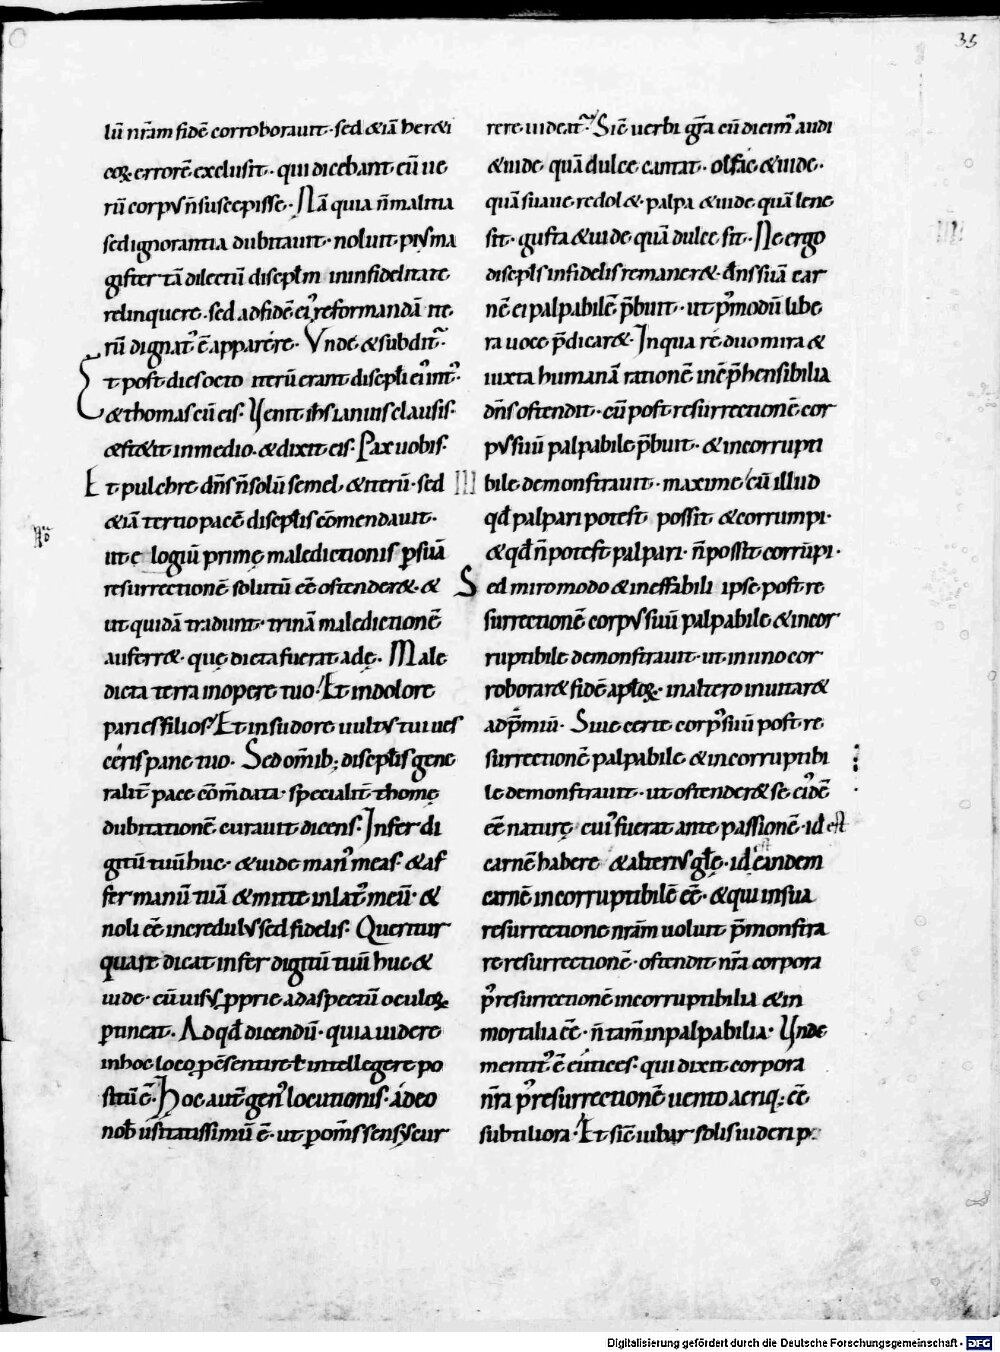 35
lū nr̄am fidē corroborauit · sed & iā her&i
coꝝ errorē exclusit · qui dicebant eū ue
rū corpus n̄ suscepisse · Nā quia n̄ malitia
sed ignorantia dubitauit · noluit pius ma
gister tā dilectū discipl̄m in infidelitate
relinquere · sed ad fidē eiꝰ reformandā ite
rū dignatꝰ ē apparere · Vnde & subditꝰ ·
Et post dies octo iterū erant discipl̄i eiꝰ intꝰ ·
& thomas cū eis · Venit ih̄s ianuis clausis ·
& stetit in medio · & dixit eis · Pax uobis ·
Et pulchre dn̄s n̄ solū semel & iterū · sed
& iā tertio pacē discipl̄is cōmendauit ·
ut elogiū primę maledictionis ꝑ suā
resurrectionē solutū ēē ostender& · &
ut quidā tradunt · trinā maledictionē
auferr& · quę dicta fuerat adę · Male
dicta terra in opere tuo · Et in dolore
paries filios · Et in sudore uultus tui ues
ceris pane tuo · Sed om̄ib; discipl̄is gene
ralit̄ pace cōm̄data · specialit̄ thomę
dubitationē curauit dicens · Infer di
gitū tuū huc · & uide manꝰ meas · & af
fer manū tuā & mitte in latꝰ meū · &
noli ēē incredulus sed fidelis · Queritur
quare dicat infer digitū tuū huc &
uide · cū uisus ꝓprie ad aspectū oculoꝝ
ꝑtineat · Ad qd̄ dicendū · quia uidere
in hoc loco ꝑ sentire ł intellegere po
sitū ē · Hoc aut̄ genꝰ locutionis · adeo
nob̄ usitatissimū ē · ut ꝑ om̄s sensus cur
rere uideatꝰ · Sic̄ uerbi gr̄a cū dicimꝰ audi
& uide quā dulce cantat · olfac & uide ·
quā suaue redol& · palpa & uide quā lene
sit · gusta & uide quā dulce sit · Ne ergo
discipl̄s infidelis remaner& · dn̄s suā car
nē ei palpabilē p̄buit · ut pꝰmodū libe
ra uoce p̄dicar& · In qua re duo mira &
iuxta humanā rationē incp̄hensibilia
dn̄s ostendit · cū post resurrectionē cor
pus suū palpabile p̄buit · & incorrupti
bile demonstrauit · maxime cū illud
qd̄ palpari potest possit & corrumpi ·
& qd̄ n̄ potest palpari · n̄ possit corrūpi ·
Sed miro modo & ineffabili ipse post re
surrectionē corpus suū palpabile & incor
ruptibile demonstrauit · ut in uno cor
roborar& fidē apl̄oꝝ · in altero inuitar&
ad p̄miū · Siue certe corpꝰ suū post re
surrectionē palpabile & incorruptibi
le demonstrauit · ut ostender& se eiꝰdē
ēē naturę cuiꝰ fuerat ante passionē · id est
carnē habere & alterius gl̄ę · id est eandem
carnē incorruptibilē ēē · & qui in sua
resurrectione nr̄am uoluit p̄monstra
re resurrectionē · ostendit nr̄a corpora
pꝰ resurrectionē incorruptibilia & in
mortalia ēē · n̄ tam̄ inpalpabilia · Vnde
mentitꝰ ē eutices · qui dixit corpora
nr̄a pꝰ resurrectionē uento aeriq; ēē
subtiliora · Et sic̄ iubar solis uideri p
Digitalisierung gefördert durch die Deutsche Forschungsgemeinschaft - DFG